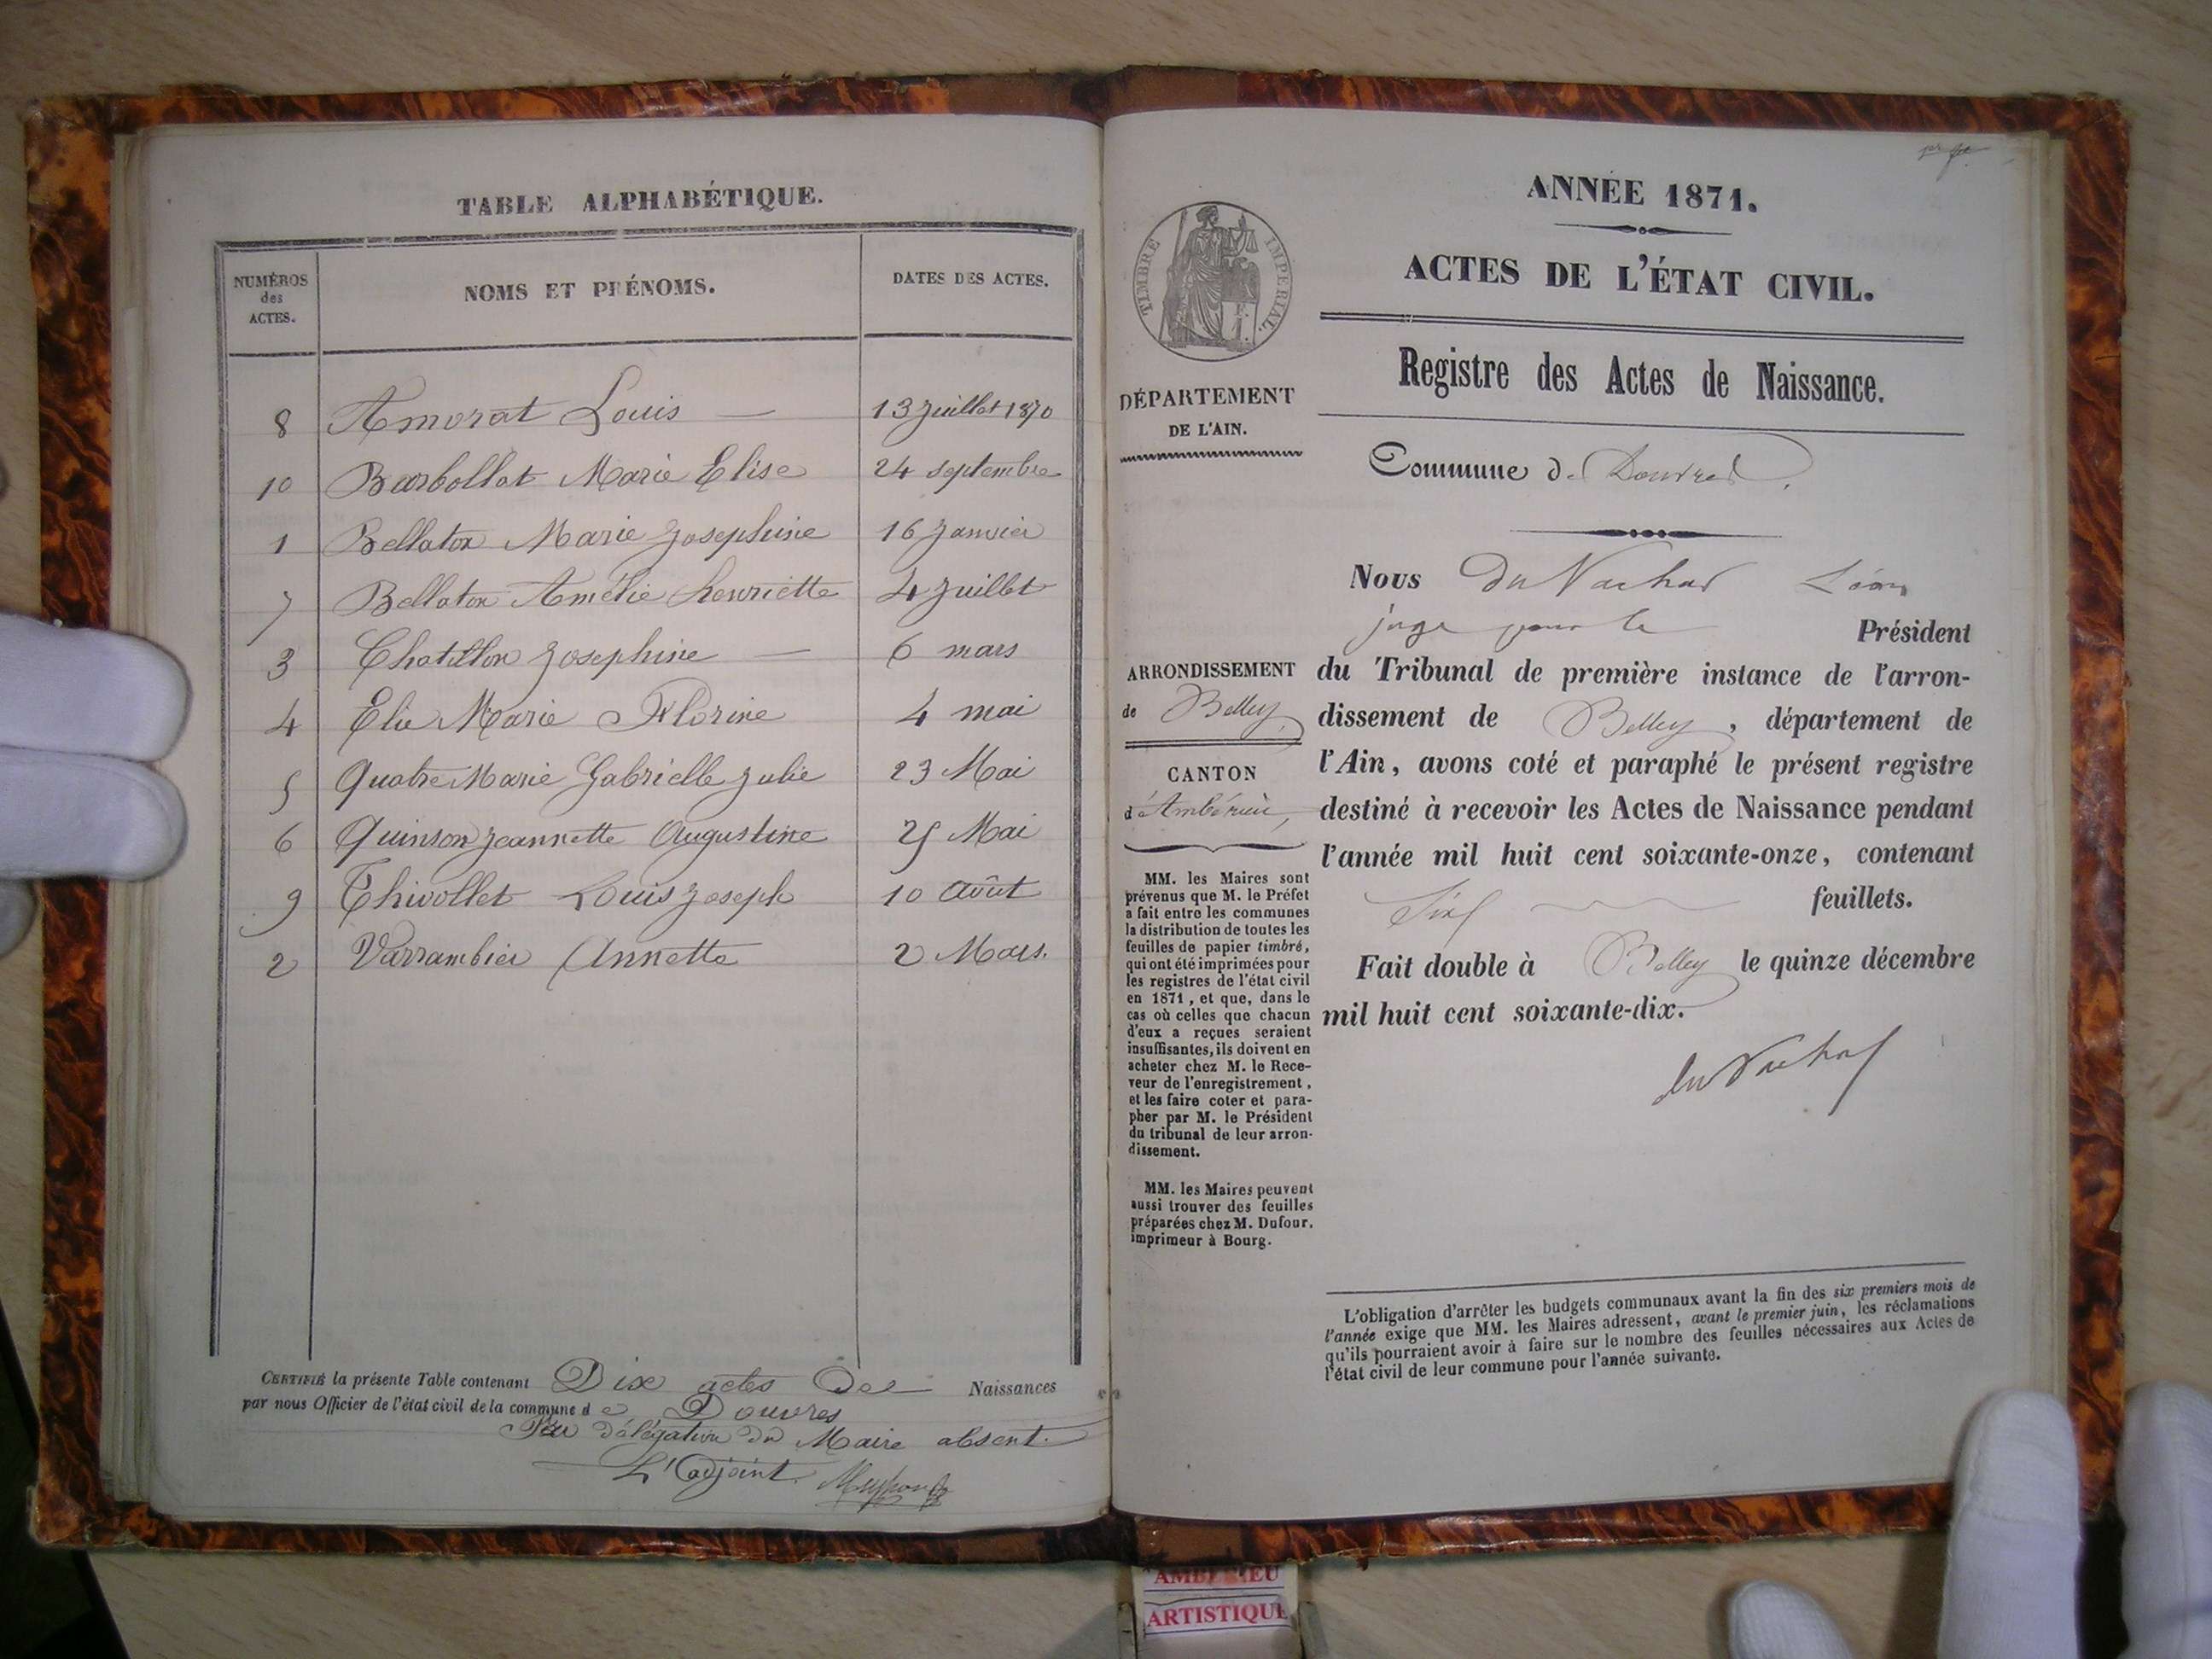 TABLE ALPHABÉTIQUE.
NUMÉROS des ACTES. NOMS ET PRÉNOMS. DATES DES ACTES.
8 Amorat Louis — 13 Juillet 1870
10 Barbollat Marie Elise 24 septembre
1 Bellaton Marie Josephine 16 Janvier
7 Bellaton Amélie henriette 4 Juillet
3 Chatillon Josephine — 6 mars
4 Elie Marie Florine 4 mai
5 Quatre Marie Gabrielle Julie 23 Mai
6 Quinson Jeannette Augustine 25 Mai
9 Thivollet Louis Joseph 10 Août
2 Varrambier Annette 2 Mars.
CERTIFIÉ la présente Table contenant Dix actes de Naissances
par nous Officier de l'état civil de la commune de Douvres
Par délégation du Maire absent.
L'adjoint
per
TIMBRE IMPERIAL.
DÉPARTEMENT
DE L'AIN.
ARRONDISSEMENT
de Belley,
CANTON
d'Ambérieu,
MM. les Maires sont
prévenus que M. le Préfet
a fait entre les communes
la distribution de toutes les
feuilles de papier timbré,
qui ont été imprimées pour
les registres de l'état civil
en 1871, et que, dans le
cas où celles que chacun
d'eux a reçues seraient
insuffisantes, ils doivent en
acheter chez M. le Rece-
veur de l'enregistrement,
et les faire coter et para-
pher par M. le Président
du tribunal de leur arron-
dissement.
MM. les Maires peuvent
aussi trouver des feuilles
préparées chez M. Dufour,
imprimeur à Bourg.
ANNÉE 1871.
ACTES DE L'ÉTAT CIVIL.
Registre des Actes de Naissance.
Commune de Douvres.
Nous du Nachat Léon
juge pour le Président
du Tribunal de première instance de l'arron-
dissement de Belley, département de
l'Ain, avons coté et paraphé le présent registre
destiné à recevoir les Actes de Naissance pendant
l'année mil huit cent soixante-onze, contenant
Six feuillets.
Fait double à Belley le quinze décembre
mil huit cent soixante-dix.
du Nachat
L'obligation d'arrêter les budgets communaux avant la fin des six premiers mois de
l'année exige que MM. les Maires adressent, avant le premier juin, les réclamations
qu'ils pourraient avoir à faire sur le nombre des feuilles nécessaires aux Actes de
l'état civil de leur commune pour l'année suivante.
ARTISTIQUE